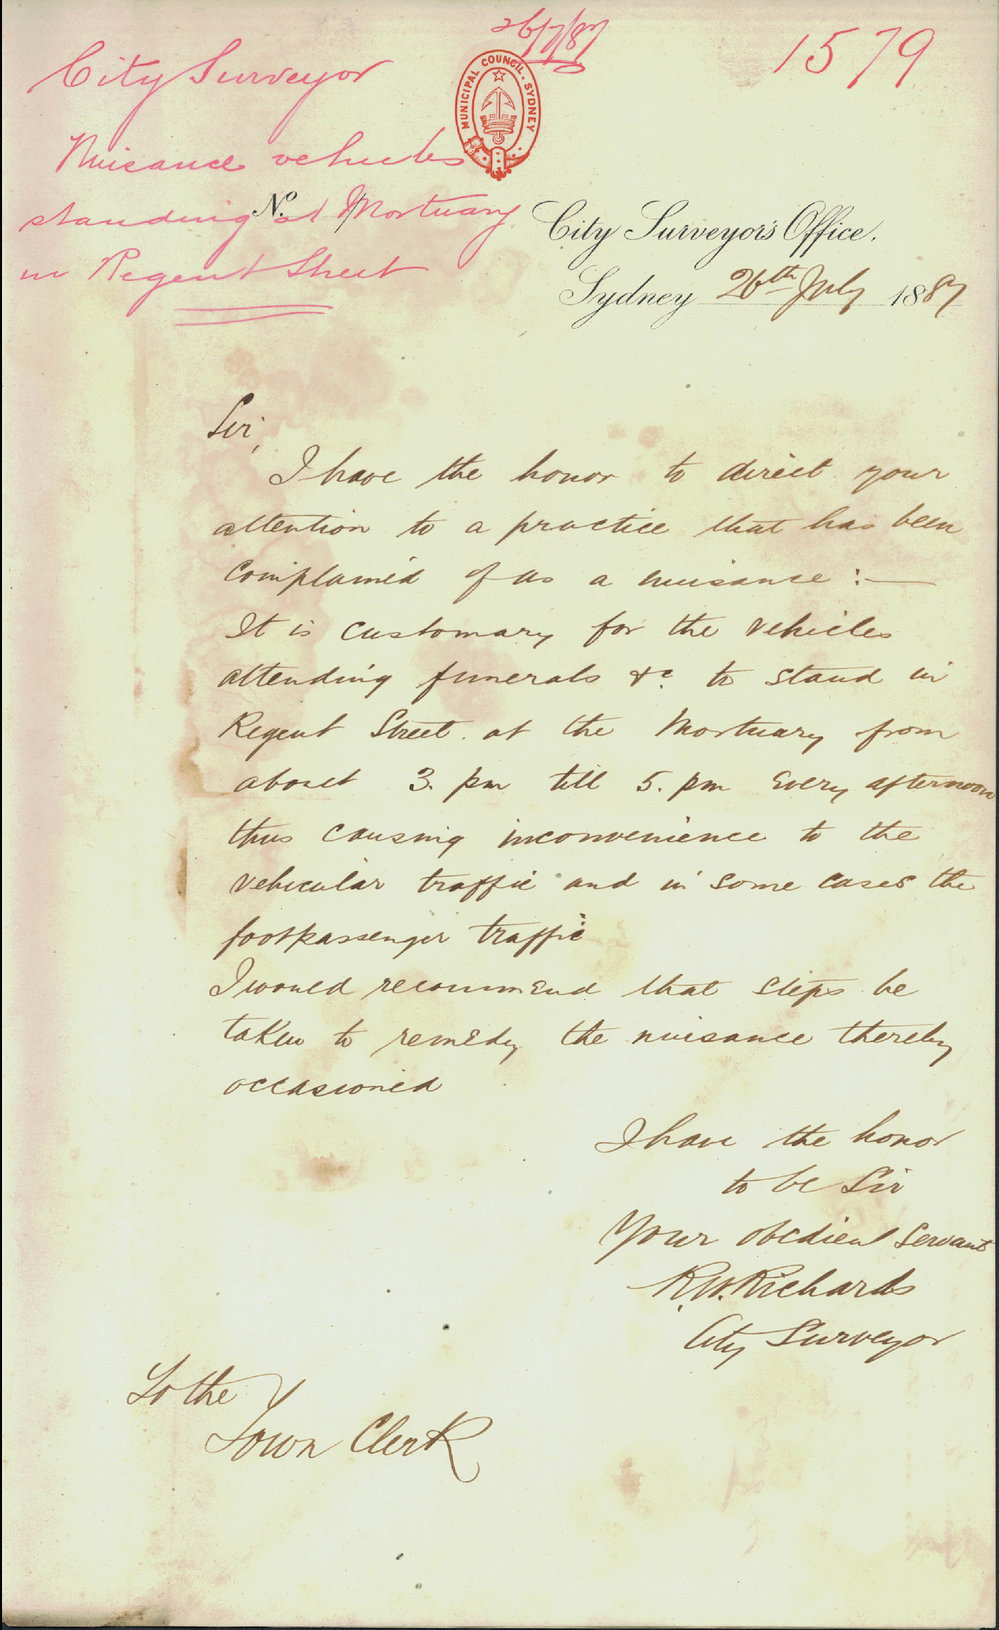 26/7/87
1579
City Surveyor
MUNICIPAL COUNCIL. SYDNEY
Nuisance vehicles
standing at Mortuary
in Regent Street
No.
City Surveyor's Office.
Sydney 26th July 1887
Sir,
I have the honor to direct your
attention to a practice that has been
complained of as a nuisance :—
It is customary for the vehicles
attending funerals &c. to stand in
Regent Street at the Mortuary from
about 3. pm till 5. pm every afternoon
thus causing inconvenience to the
vehicular traffic and in some cases the
footpassenger traffic
I would recommend that steps be
taken to remedy the nuisance thereby
occasioned
I have the honor
to be Sir
Your obedient Servant
R.W. Richards
City Surveyor
To the
Town Clerk